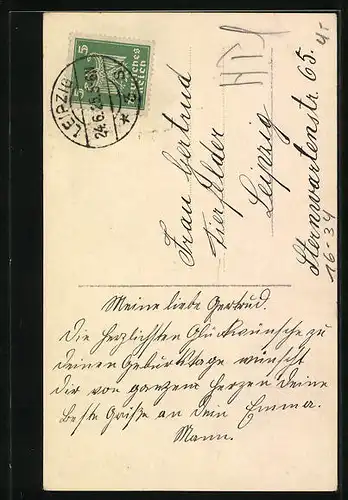 5
Deutsches
Reich
LEIPZIG
24.6.25
Frau Gertrud
Tierfelder
Leipzig
Sternwartenstr. 65.
16-34
Meine liebe Gertrud.
Die herzlichsten Glückwünsche zu
deinen Geburtstage wünscht
Dir von ganzem Herzen deine
beste Grüße an dein Emma.
Mann.